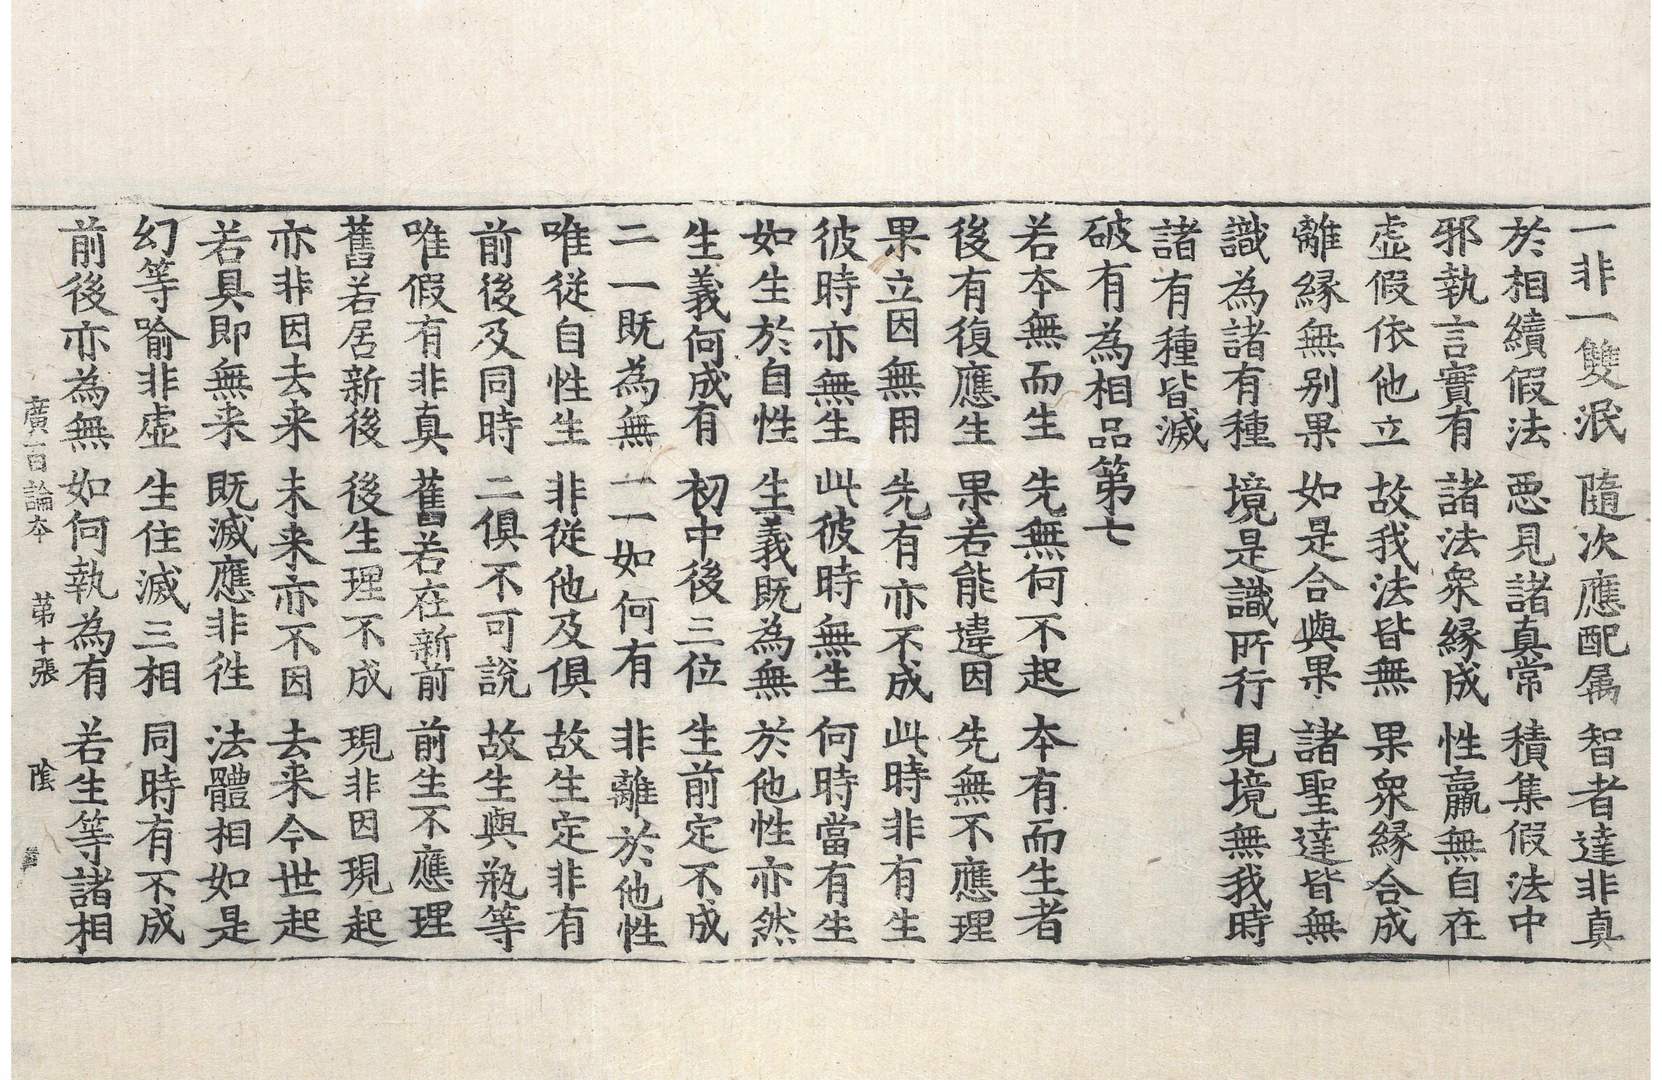 一非一雙泯　隨次應配属　智者達非真
於相續假法　惡見諸真常　積集假法中
邪執言實有　諸法衆縁成　性羸無自在
虛假依他立　故我法皆無　果衆縁合成
離縁無别果　如是合與果　諸聖達皆無
識為諸有種　境是識所行　見境無我時
諸有種皆滅
破有為相品第七
若本無而生　先無何不起　本有而生者
後有復應生　果若能違因　先無不應理
果立因無用　先有亦不成　此時非有生
彼時亦無生　此彼時無生　何時當有生
如生於自性　生義既為無　於他性亦然
生義何成有　初中後三位　生前定不成
二一既為無　一一如何有　非離於他性
唯從自性生　非從他及俱　故生定非有
前後及同時　二俱不可說　故生與瓶等
唯假有非真　舊若在新前　前生不應理
舊若居新後　後生理不成　現非因現起
亦非因去来　未来亦不因　去来今世起
若具即無来　既滅應非徃　法體相如是
幻等喻非虛　生住滅三相　同時有不成
前後亦為無　如何執為有　若生等諸相
廣百論本　第十張　陰